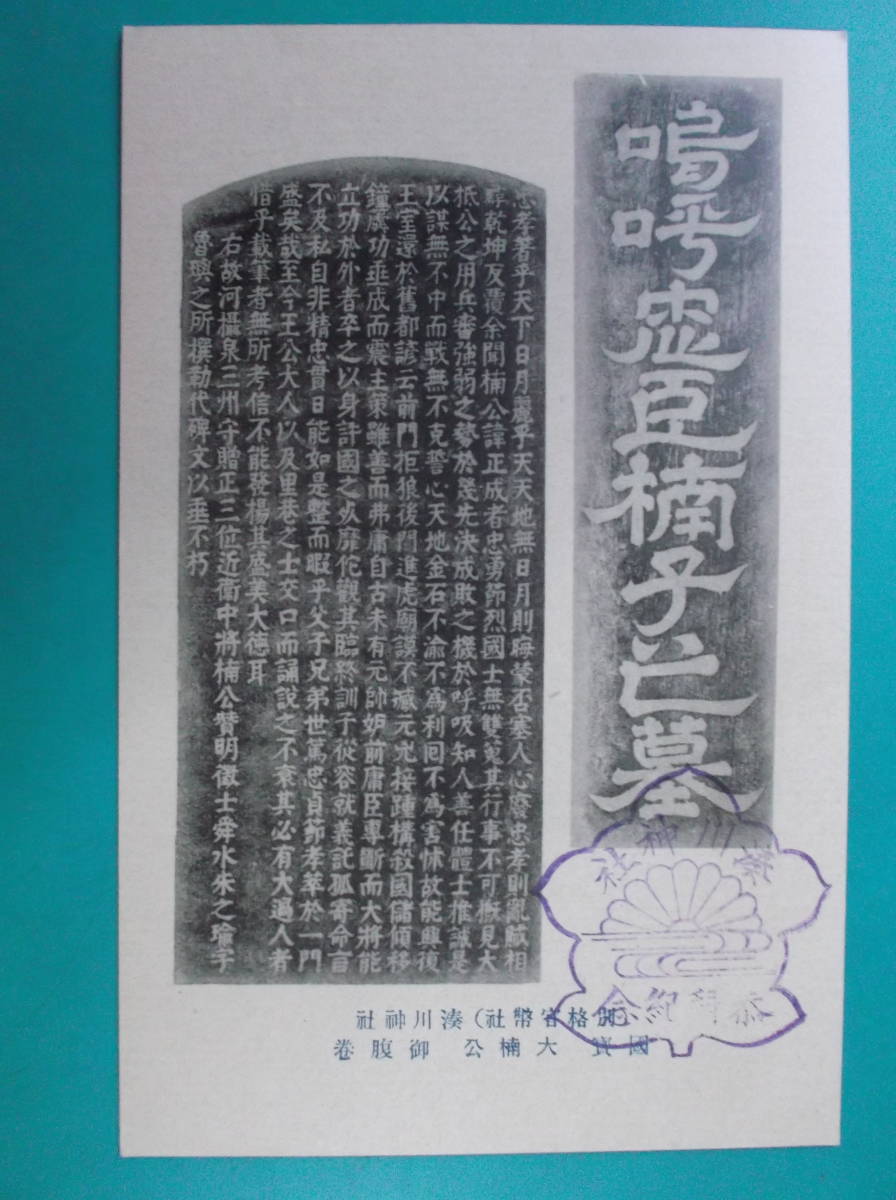 嗚呼忠臣楠子之墓
忠孝著乎天下日月麗乎天天地無日月則晦蒙否塞人心廢忠孝則亂賊相
尋乾坤反覆余聞楠公諱正成者忠勇節烈國士無雙蒐其行事不可概見大
抵公之用兵審強弱之勢於幾先決成敗之機於呼吸知人善任體士推誠是
以謀無不中而戰無不克誓心天地金石不渝不為利回不為害怵故能興復
王室還於舊都諺云前門拒狼後門進虎廟謨不臧元兇接踵構殺國儲傾移
鐘虡功垂成而震主策雖善而弗庸自古未有元帥妒前庸臣專斷而大將能
立功於外者卒之以身許國之死靡佗觀其臨終訓子從容就義託孤寄命言
不及私自非精忠貫日能如是整而暇乎父子兄弟世篤忠貞節孝萃於一門
盛矣哉至今王公大人以及里巷之士交口而誦說之不衰其必有大過人者
惜乎載筆者無所考信不能發揚其盛美大德耳
右故河攝泉三州守贈正三位近衛中將楠公贊明徵士舜水朱之瑜字
魯璵之所撰勒代碑文以垂不朽
湊川神社
參拜紀念
(別格官幣社)湊川神社
國寶 大楠公 御腹卷